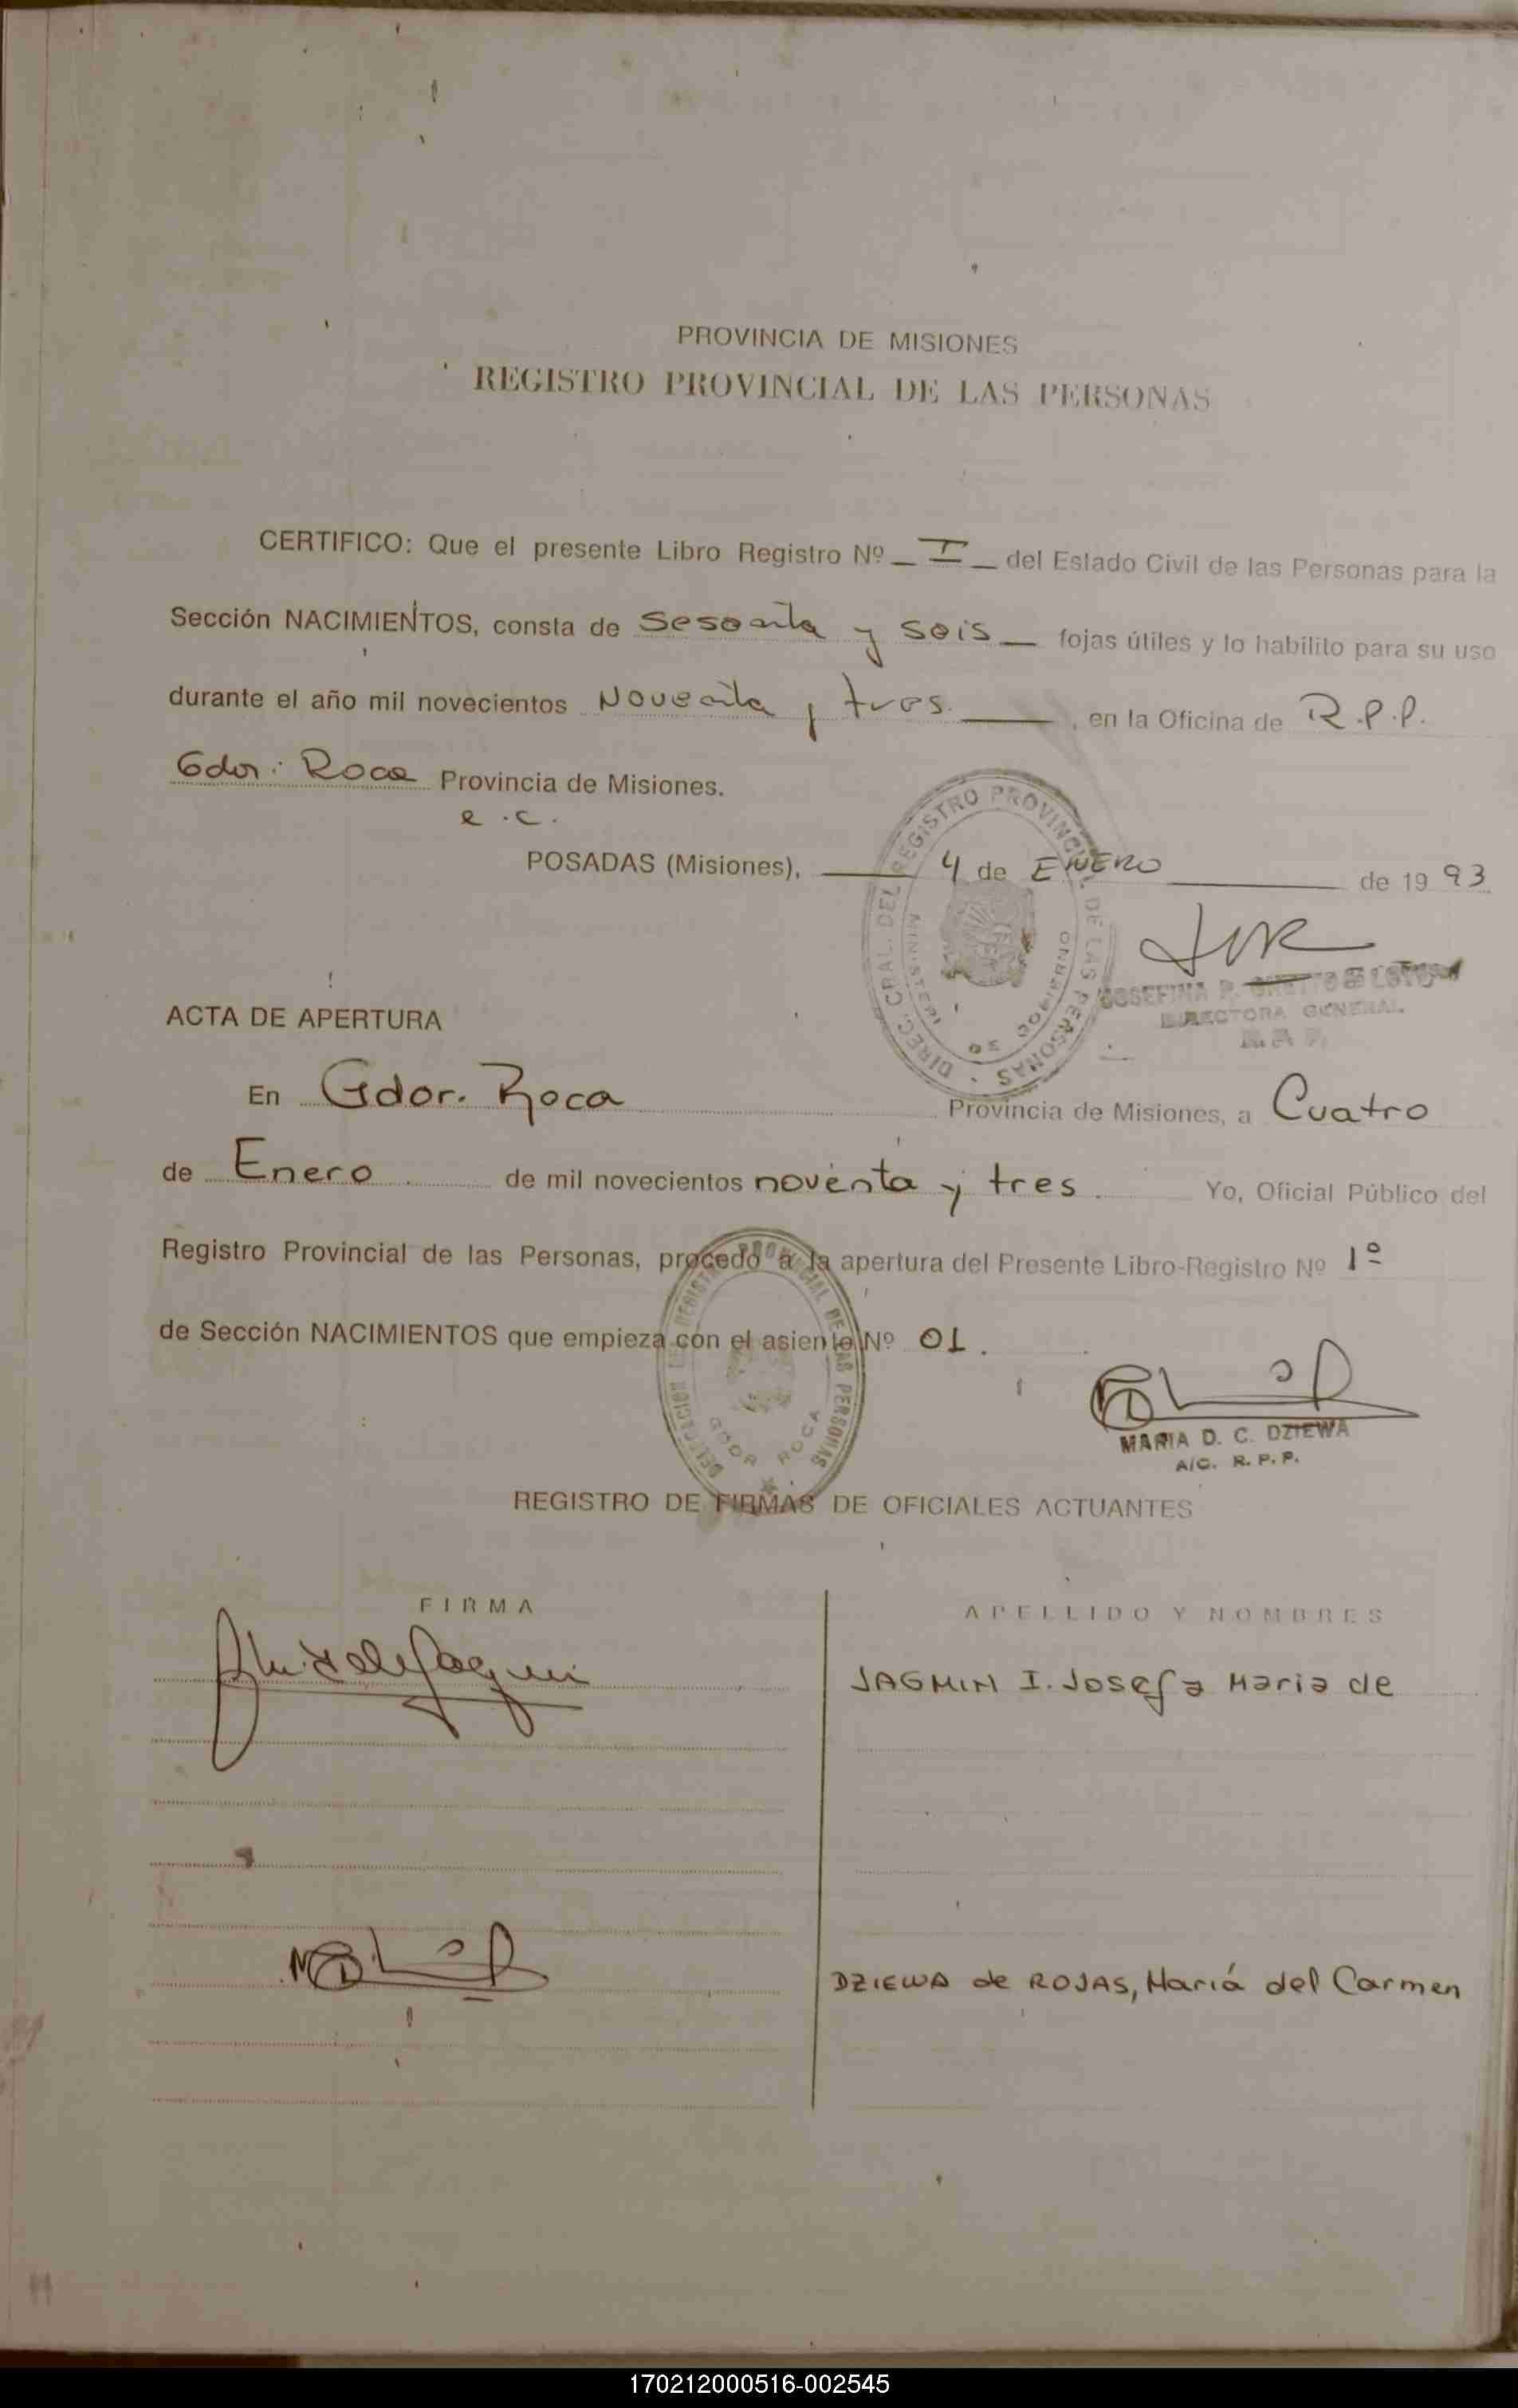 PROVINCIA DE MISIONES
REGISTRO PROVINCIAL DE LAS PERSONAS
CERTIFICO: Que el presente Libro Registro Nº I del Estado Civil de las Personas para la
Sección NACIMIENTOS, consta de Sesenta y seis fojas útiles y lo habilito para su uso
durante el año mil novecientos Noventa y tres. , en la Oficina de R.P.P.
Gdor. Roca Provincia de Misiones.
e.c.
POSADAS (Misiones), 4 de ENERO de 19 93
DIREC. GRAL. DEL REGISTRO PROVINCIAL DE LAS PERSONAS
MINISTERIO DE GOBIERNO
JOSEFINA P.
DIRECTORA GENERAL
ACTA DE APERTURA
En Gdor. Roca Provincia de Misiones, a Cuatro
de Enero de mil novecientos noventa y tres. Yo, Oficial Público del
Registro Provincial de las Personas, procedo a la apertura del Presente Libro-Registro Nº 1º
de Sección NACIMIENTOS que empieza con el asiento Nº 01.
DELEGACION DEL REGISTRO PROVINCIAL DE LAS PERSONAS
GDOR ROCA
MARIA D. C. DZIEWA
A/C. R. P. P.
REGISTRO DE FIRMAS DE OFICIALES ACTUANTES
FIRMA APELLIDO Y NOMBRES
JAGMIN I. Josefa Maria de
DZIEWA de ROJAS, Mariá del Carmen
170212000516-002545